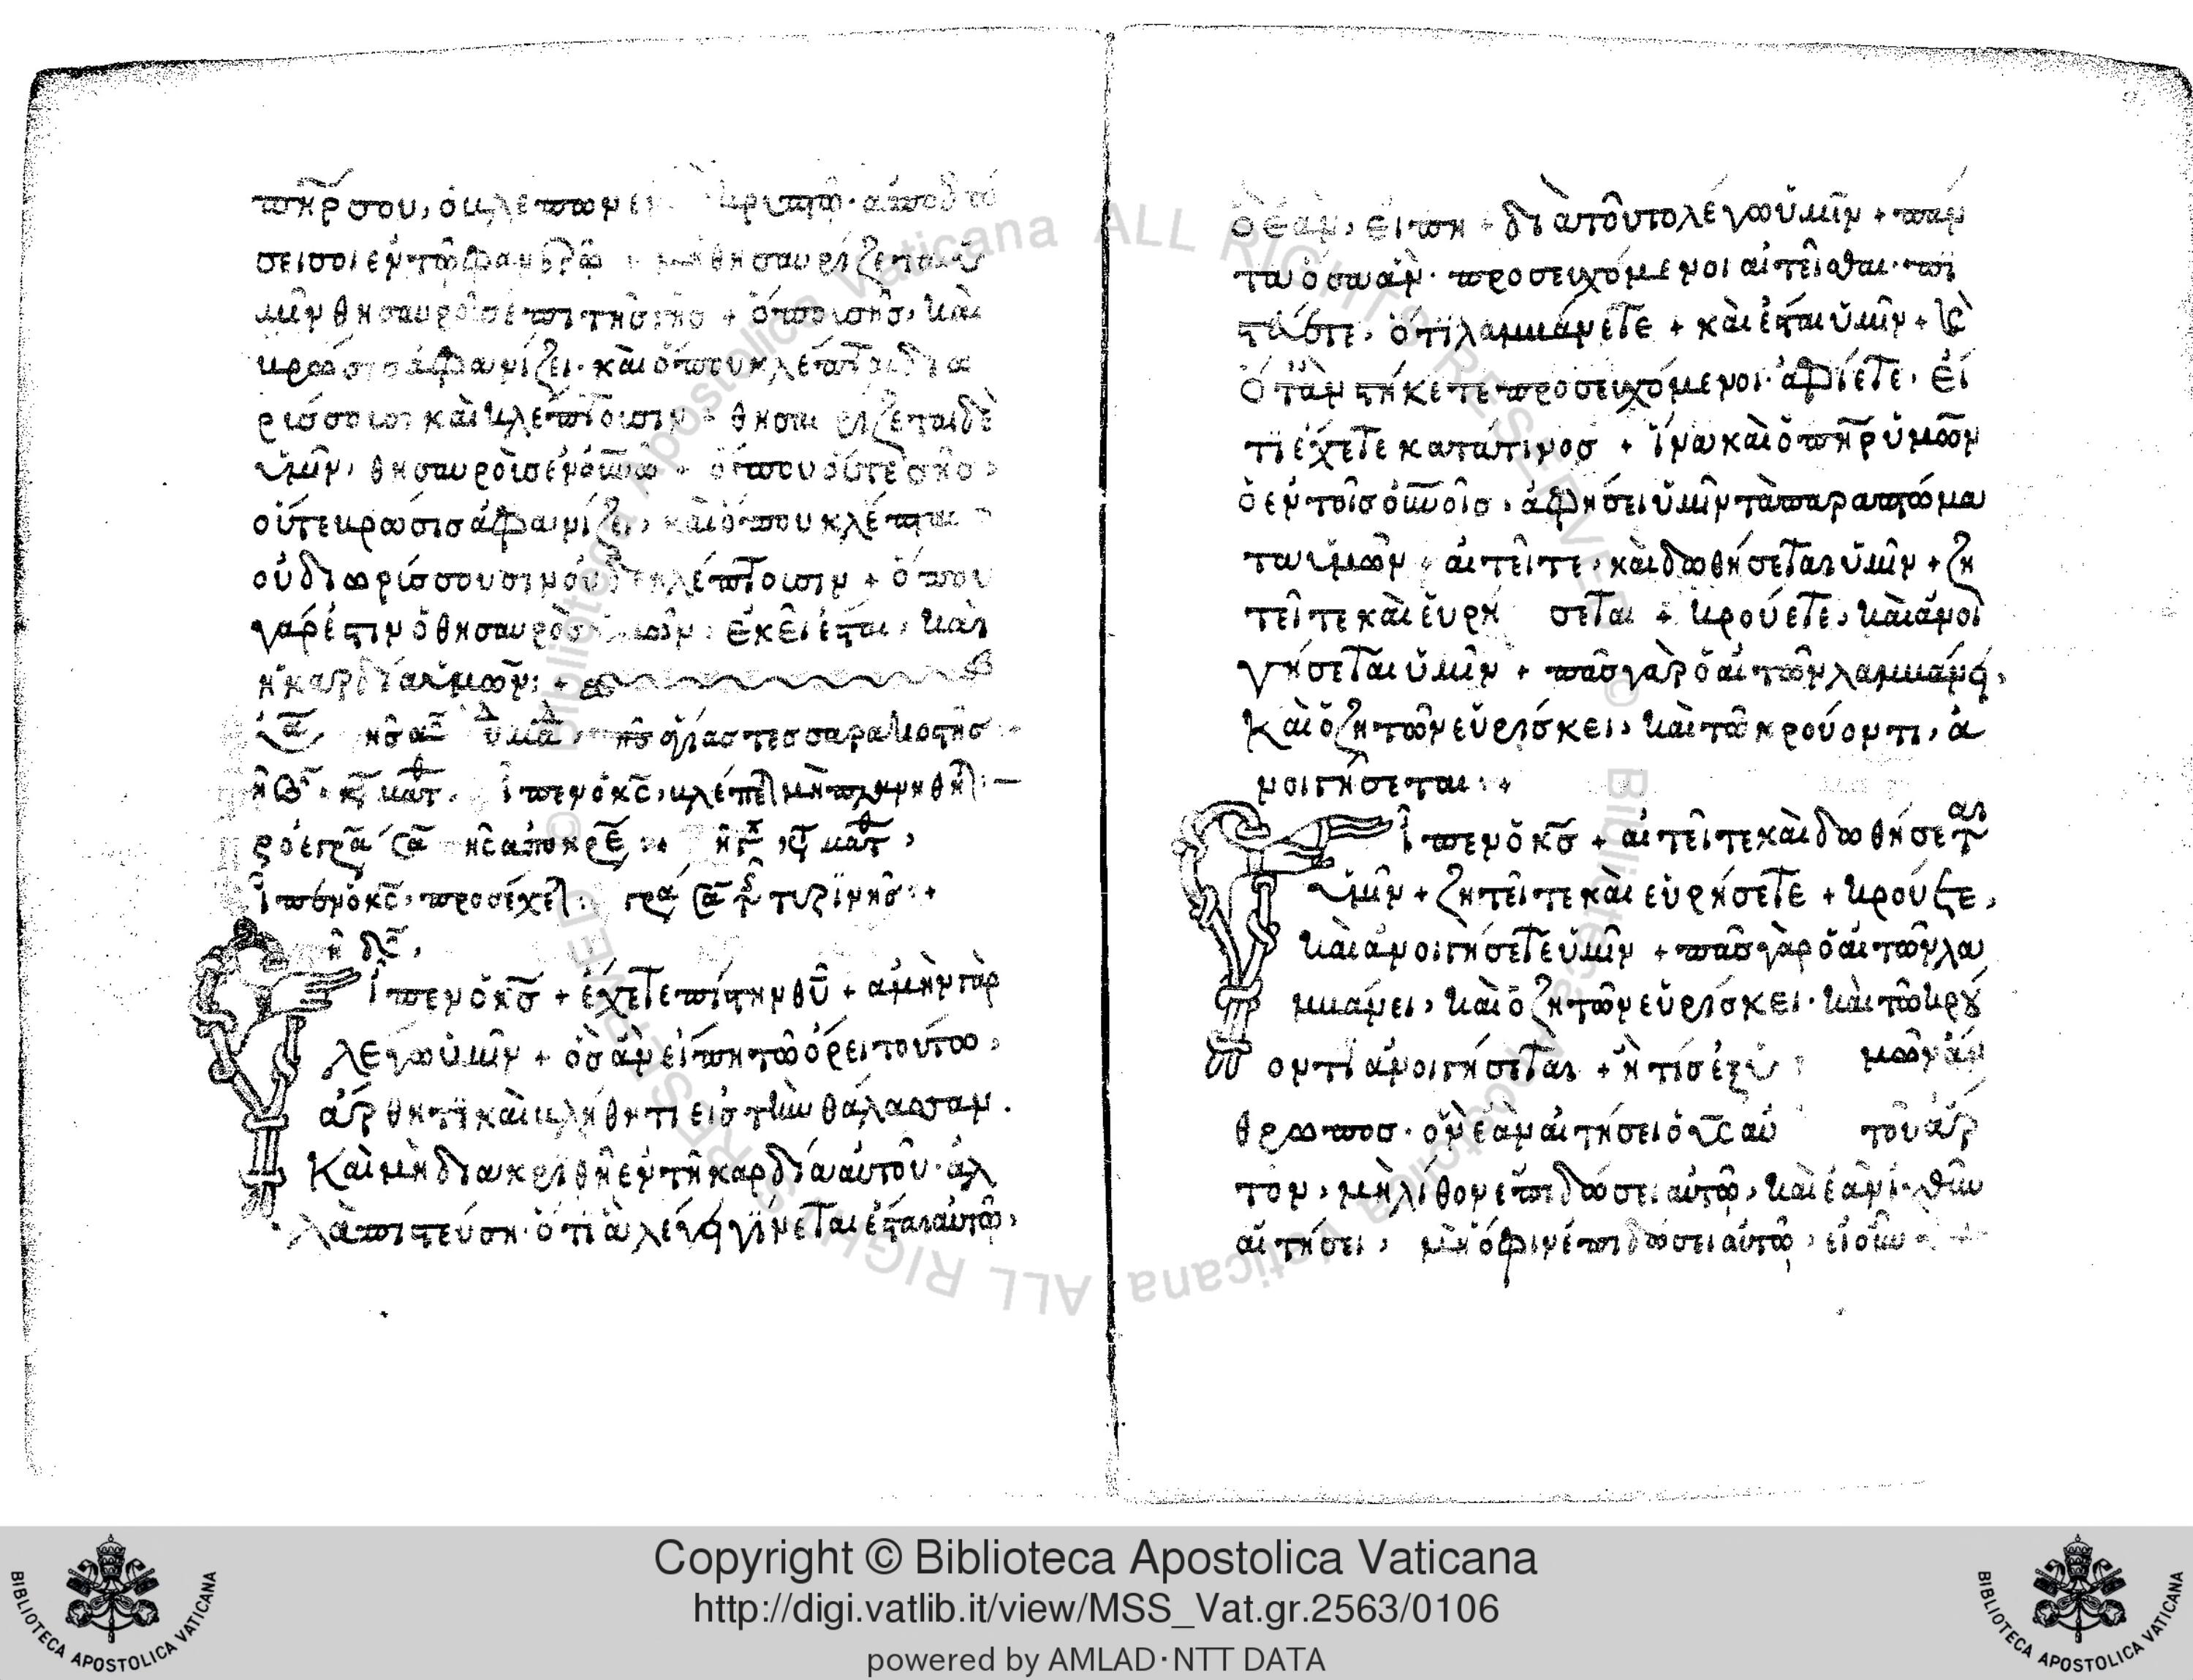 πη̅ρ σου, ὁ βλέπων ἐν κρυπτῶ· ἀποδώ
σει σοι ἐν τῶ φανερῶ + μὴ θησαυρίζεται ὑ
μῖν θησαυροῖσ ἐπὶ τῆσ γῆσ + ὅπου σῆσ, καὶ
βρῶσισ ἀφανίζει· καὶ ὅπου κλέπται δια
ρίσσουσι καὶ κλέπτουσιν + θησαυρίζεται δὲ
ὑμῖν, θησαυροὶσ ἐν οὐνω + ὅπου οὔτε σῆσ,
οὔτε βρῶσισ ἀφανίζει, καὶ ὅπου κλέπται
οὐ διωρίσσουσιν οὐδὲ κλέπτουσιν + ὅπου
γάρ ἐστιν ὁ θησαυρὸσ ὑμῶν, ἐκεῖ ἔσται, καὶ
ἡ καρδία ὑμῶν: +
τεσσαρακοστῆσ
Εἶπεν ὁ κσ̅, βλέπετε μὴ πλανηθῆτε: —
Εἶπεν ὁ κσ̅, προσέχετε:
Εἶπεν ὁ κ̅σ + ἔχετε πίστην θυ̅ + ἀμὴν γὰρ
λέγω ὑμῖν + ὃσ ἂν εἴπη τῶ ὄρει τούτω,
ἄρθητι καὶ βλήθητι εἰσ τὴν θάλασσαν.
Καὶ μὴ διακριθῆ ἐν τῆ καρδία αὐτοῦ· ἀλ
λὰ πιστεύση· ὅτι ἃ λέγει γίνεται ἔσται αὐτῶ,
ὃ ἐὰν, εἴπη + διὰ τοῦτο λέγω ὑμῖν + πάν
τα ὅσα ἂν· προσευχόμενοι αἰτεῖσθαι· πι
στεύετε, ὅτι λαμβάνετε + καὶ ἔσται ὑμῖν + κ(αὶ)
ὅταν στήκετε προσευχόμενοι· ἀφίετε, εἴ
τι ἔχετε κατά τινοσ + ἵνα καὶ ὁ πη̅ρ ὑμῶν
ὁ ἐν τοῖσ οὐνοῖσ, ἀφήσει ὑμῖν τὰ παραπτώμα
τα ὑμῶν + αἰτεῖτε, καὶ δωθήσεται ὑμῖν + ζη
τεῖτε καὶ εὑρήσεται + κρούετε, καὶ ἀνοι
γήσεται ὑμῖν + πᾶσ γὰρ ὁ αἰτῶν λαμβάνει,
Καὶ ὁ ζητῶν εὑρίσκει, καὶ τῶ κρούοντι, ἀ
νοιγήσεται: +
Εἶπεν ὁ κ̅σ + αἰτεῖτε καὶ δωθήσεται
ὑμῖν + ζητεῖτε καὶ εὑρήσετε + κρούετε,
καὶ ἀνοιγήσετε ὑμῖν + πᾶσ γὰρ ὁ αἰτῶν λα
μβάνει, καὶ ὁ ζητῶν εὑρίσκει· καὶ τῶ κρού
οντι ἀνοιγήσεται + ἢ τίσ ἐξ ὑμῶν ἄν
θρωποσ· ὃν ἐὰν αἰτήσει ὁ υ̅σ αὐτοῦ ἄρ
τον, μὴ λίθον ἐπιδώσει αὐτῶ, καὶ ἐὰν ἰχθὺν
αἰτήσει, μὴ ὄφιν ἐπιδώσει αὐτῶ, εἰ οὖν
Copyright © Biblioteca Apostolica Vaticana
http://digi.vatlib.it/view/MSS_Vat.gr.2563/0106
powered by AMLAD·NTT DATA
BIBLIOTECA APOSTOLICA VATICANA
BIBLIOTECA APOSTOLICA VATICANA